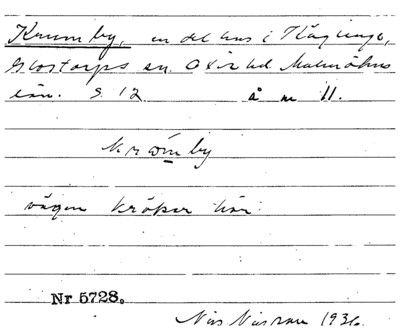 Krumby, en del hus i Käglinge,
Glostorps sn. Oxie hd Malmöhus
län. S. 12 å n 11.
krömby
vägen kröker här.
Nr 5728.
Nils Nilsson 1936.